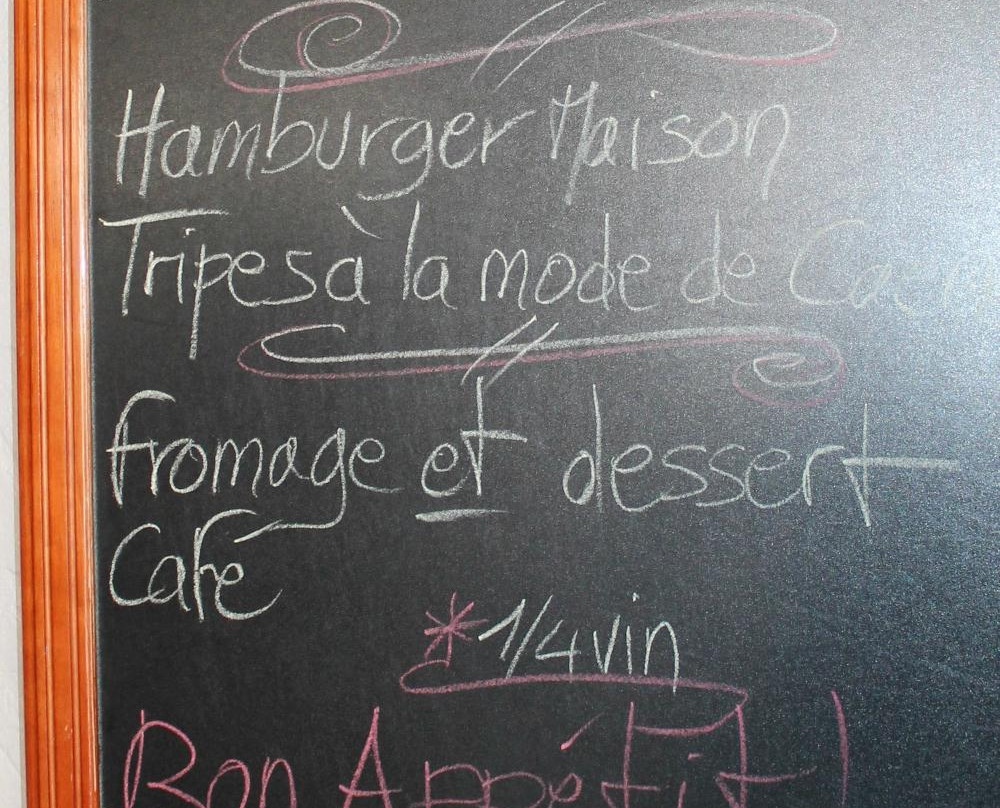 Hamburger Maison
Tripes à la mode de Caen
fromage et dessert
Café
* 1/4 vin
Bon Appétit !